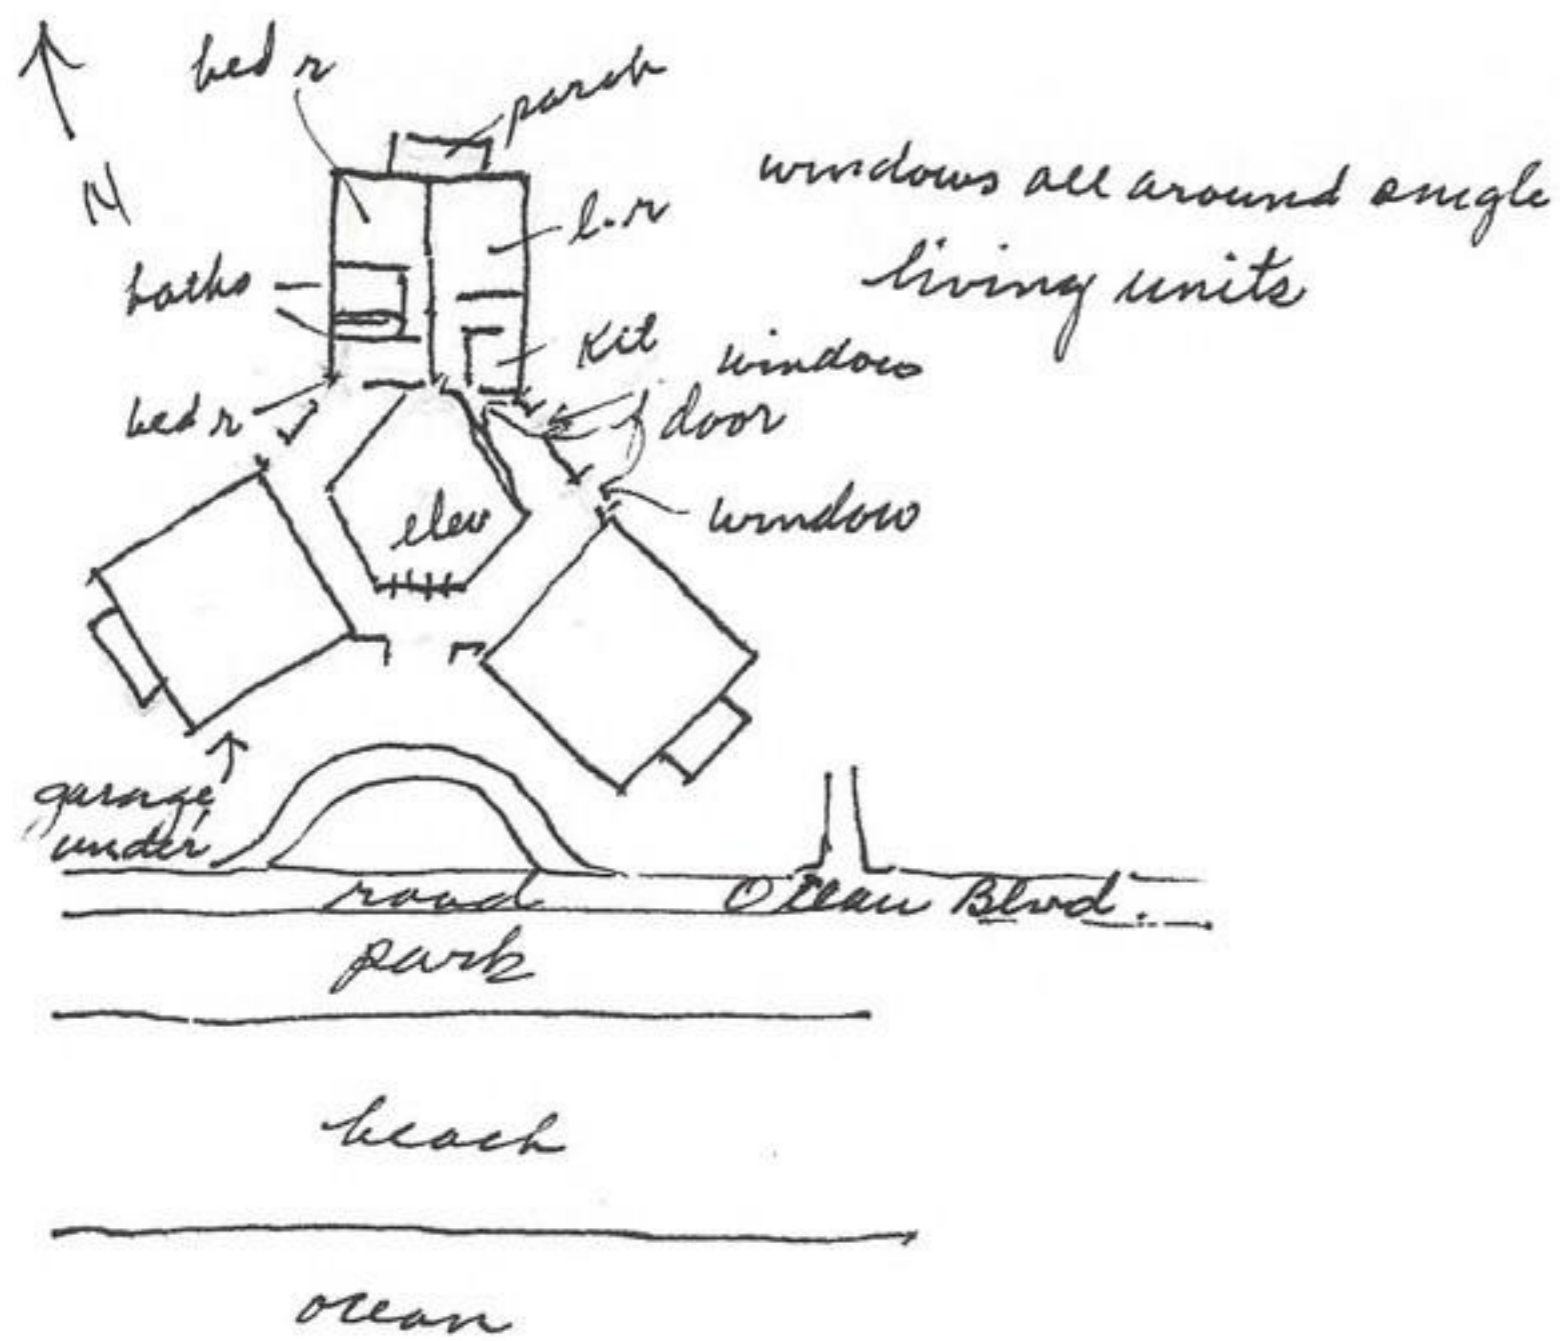 bed r
porch
N
windows all around single
living units
l.r
baths
kit
window
bed r
door
elev
window
garage
under
road
Ocean Blvd.
park
beach
ocean